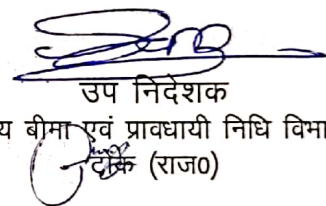 उप निदेशक
य बीमा एवं प्रावधायी निधि विभा
टोंक (राज0)